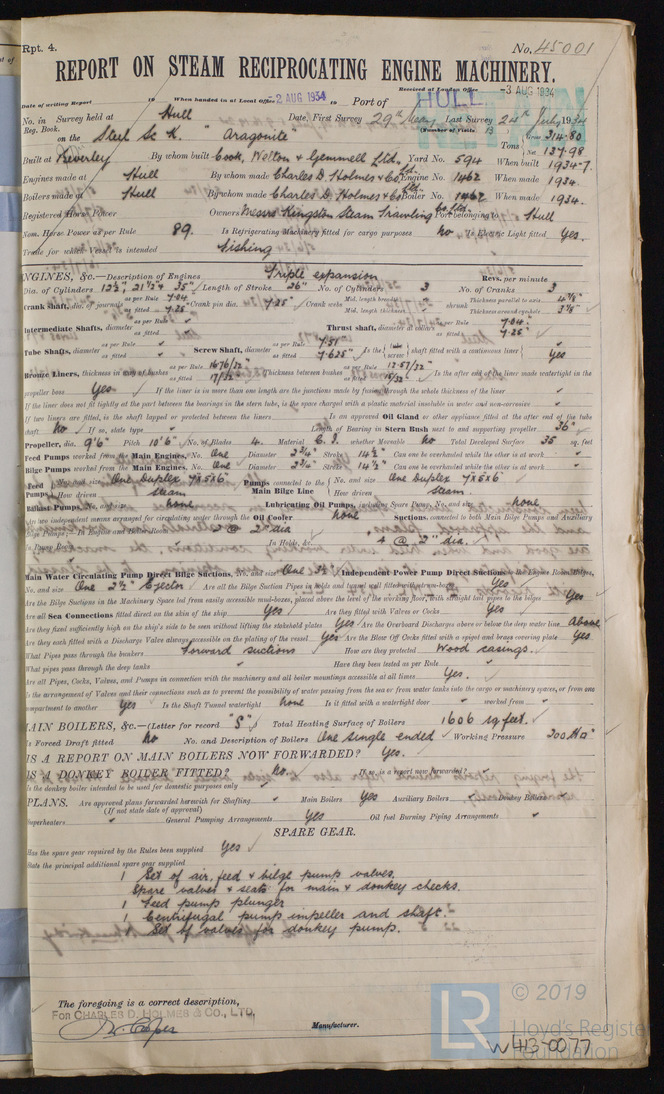 Rpt. 4.
No. 45001
REPORT ON STEAM RECIPROCATING ENGINE MACHINERY.
Received at London Office -3 AUG 1934
Date of writing Report 19 When handed in at Local Office -2 AUG 1934 19 Port of HULL
No. in Survey held at Hull Date, First Survey 29th May Last Survey 24th July 1934
Reg. Book. (Number of Visits 13
on the Steel Sc K. "Aragonite" Tons Gross 314.80 Net 137.98
Built at Beverley By whom built Cook, Welton & Gemmell Ltd. Yard No. 594 When built 1934-7.
Engines made at Hull By whom made Charles D. Holmes & Co Ltd. Engine No. 1462 When made 1934.
Boilers made at Hull By whom made Charles D. Holmes & Co Ltd. Boiler No. 1462 When made 1934.
Registered Horse Power Owners Messrs Kingston Steam Trawling Co Ltd. Port belonging to Hull
Nom. Horse Power as per Rule 89. Is Refrigerating Machinery fitted for cargo purposes No Is Electric Light fitted Yes.
Trade for which vessel is intended Fishing
ENGINES, &c.—Description of Engines Triple expansion Revs. per minute
Dia. of Cylinders 12½", 21½" & 35" Length of Stroke 26" No. of Cylinders 3 No. of Cranks 3
Crank shaft, dia. of journals as per Rule 7.04 as fitted 7.25" Crank pin dia. 7.25" Crank webs Mid. length breadth Mid. length thickness shrunk Thickness parallel to axis 4⅝" Thickness around eyehole 3⅛"
Intermediate Shafts, diameter as per Rule " as fitted " Thrust shaft, diameter at collars as per Rule 7.04 as fitted 7.25"
Tube Shafts, diameter as per Rule " as fitted " Screw Shaft, diameter as per Rule 7.51 as fitted 7.625" Is the tube screw shaft fitted with a continuous liner Yes
Bronze Liners, thickness in way of bushes as per Rule as fitted 17/32" Thickness between bushes as per Rule as fitted 15/32" Is the after end of the liner made watertight in the
propeller boss Yes If the liner is in more than one length are the junctions made by fusion through the whole thickness of the liner "
If the liner does not fit tightly at the part between the bearings in the stern tube, is the space charged with a plastic material insoluble in water and non-corrosive "
If two liners are fitted, is the shaft lapped or protected between the liners " Is an approved Oil Gland or other appliance fitted at the after end of the tube
shaft No If so, state type " Length of Bearing in Stern Bush next to and supporting propeller 36"
Propeller, dia. 9'6" Pitch 10'6" No. of Blades 4. Material C.I. whether Moveable No Total Developed Surface 35 sq. feet
Feed Pumps worked from the Main Engines, No. One Diameter 2¾" Stroke 14½" Can one be overhauled while the other is at work "
Bilge Pumps worked from the Main Engines, No. One Diameter 2¾" Stroke 14½" Can one be overhauled while the other is at work "
Feed Pumps No. and size One Duplex 7x5x6" Pumps connected to the Main Bilge Line No. and size One Duplex 7x5x6"
How driven steam How driven steam.
Ballast Pumps, No. and size none Lubricating Oil Pumps, including Spare Pump, No. and size none
Are two independent means arranged for circulating water through the Oil Cooler none Suctions, connected to both Main Bilge Pumps and Auxiliary
Bilge Pumps;—In Engine and Boiler Room 2 @ 2" dia
In Pump Room In Holds, &c. 4 @ 2" dia.
Main Water Circulating Pump Direct Bilge Suctions, No. and size One 3½" Independent Power Pump Direct Suctions to the Engine Room Bilges,
No. and size One 2½" Ejector Are all the Bilge Suction Pipes in holds and tunnel well fitted with strum-boxes Yes
Are the Bilge Suctions in the Machinery Space led from easily accessible mud-boxes, placed above the level of the working floor, with straight tail pipes to the bilges Yes
Are all Sea Connections fitted direct on the skin of the ship Yes Are they fitted with Valves or Cocks Yes
Are they fixed sufficiently high on the ship's side to be seen without lifting the stokehold plates Yes Are the Overboard Discharges above or below the deep water line Above
Are they each fitted with a Discharge Valve always accessible on the plating of the vessel Yes Are the Blow Off Cocks fitted with a spigot and brass covering plate Yes
What Pipes pass through the bunkers Forward suctions How are they protected Wood casings.
What pipes pass through the deep tanks " Have they been tested as per Rule "
Are all Pipes, Cocks, Valves, and Pumps in connection with the machinery and all boiler mountings accessible at all times Yes.
Is the arrangement of Valves and their connections such as to prevent the possibility of water passing from the sea or from water tanks into the cargo or machinery spaces, or from one
compartment to another Yes Is the Shaft Tunnel watertight none Is it fitted with a watertight door " worked from "
MAIN BOILERS, &c.—(Letter for record "S") Total Heating Surface of Boilers 1606 sq feet.
Is Forced Draft fitted No No. and Description of Boilers One single ended Working Pressure 200 lbs □"
IS A REPORT ON MAIN BOILERS NOW FORWARDED? Yes.
IS A DONKEY BOILER FITTED? No. If so, is a report now forwarded? "
Is the donkey boiler intended to be used for domestic purposes only "
PLANS. Are approved plans forwarded herewith for Shafting " Main Boilers Yes Auxiliary Boilers " Donkey Boilers "
(If not state date of approval)
Superheaters " General Pumping Arrangements Yes Oil fuel Burning Piping Arrangements "
SPARE GEAR.
Has the spare gear required by the Rules been supplied Yes
State the principal additional spare gear supplied
1 Set of air, feed & bilge pump valves.
Spare valves & seats for main & donkey checks.
1 Feed pump plunger
1 Centrifugal pump impeller and shaft.
1 Set of valves for donkey pump.
The foregoing is a correct description,
For CHARLES D. HOLMES & CO., LTD.
Manufacturer.
LR
© 2019
Lloyd's Register
Foundation
W413-0077